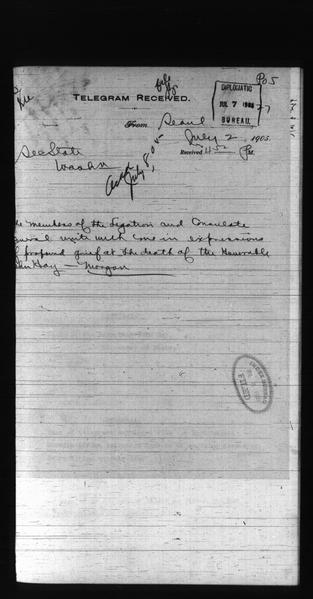 Telegram Received.
DIPLOMATIC
JUL 7 1905
BUREAU.
From Seoul
July 2, 1905.
Received 4 50 P.M.
SecState
Washn
Ackd July 8, 05
members of the Legation and Consulate
unite with me in expressions
profound grief at the death of the Honorable
Hay — Morgan
FILED